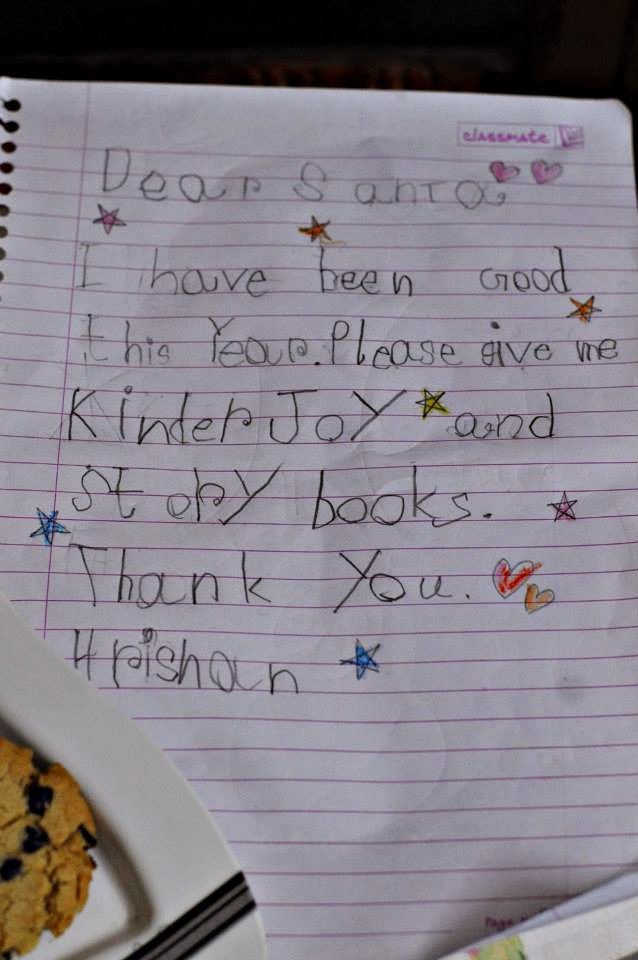 classmate
Dear Santa
I have been Good
this Year. Please give me
Kinder Joy and
story books.
Thank You.
Hrishan